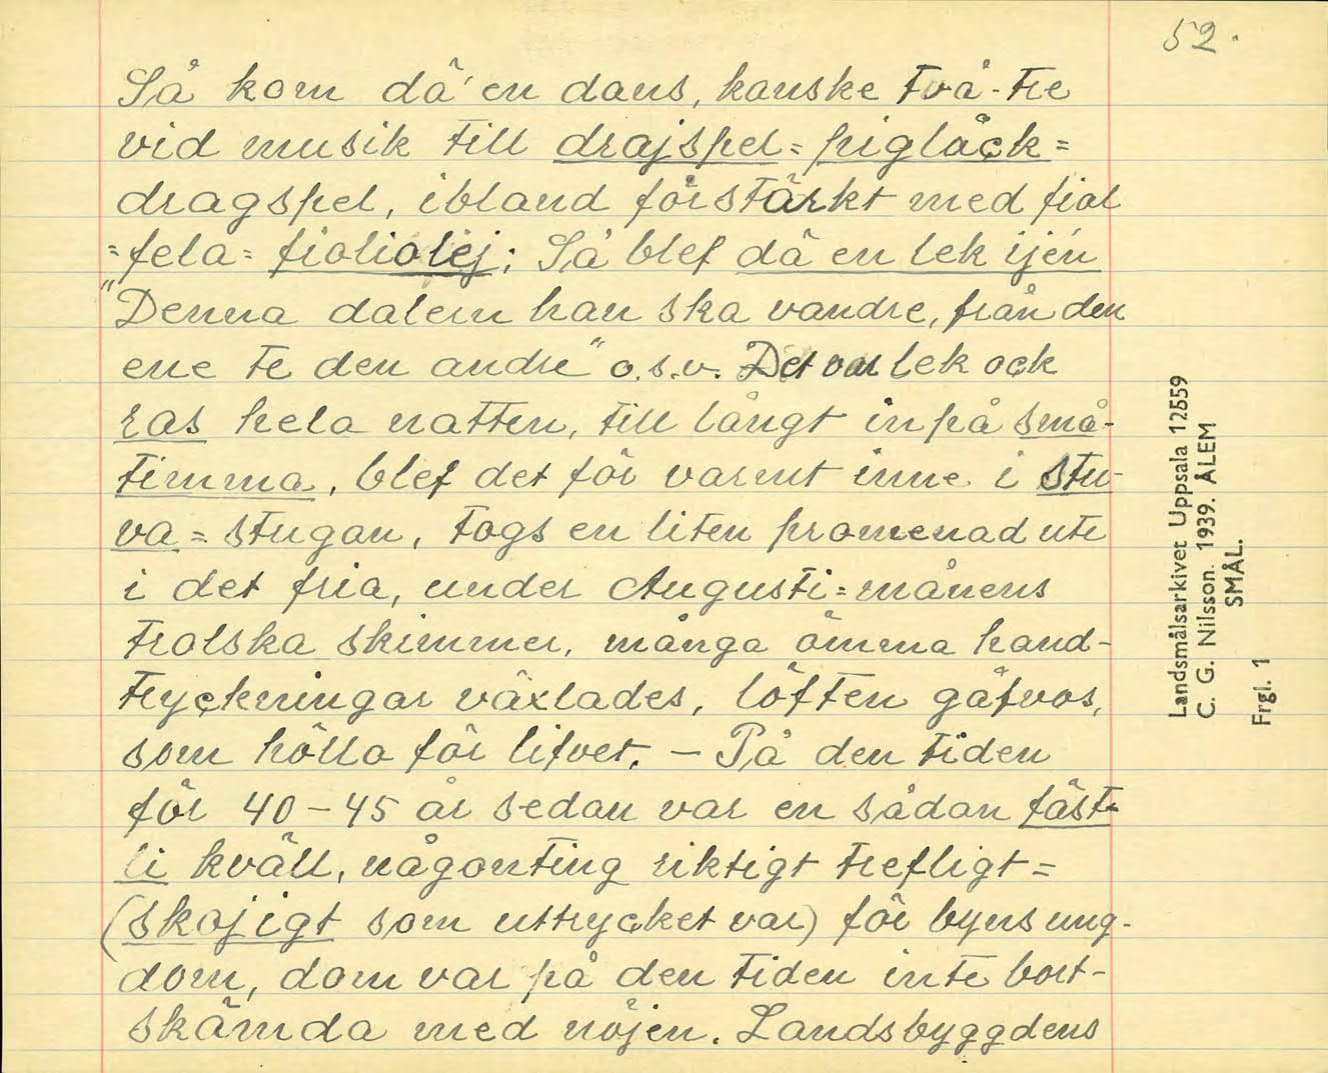 52.
Så kom då en dans, kanske två-tre
vid musik till drajspel = piglåck =
dragspel, ibland förstärkt med fiol
=fela= fioliolej; Så blef då en lek ijén
"Denna dalern han ska vandre, från den
ene te den andre" o.s.v. Det var lek ock
ras hela natten, till långt in på små-
timma, blef det för varmt inne i stu-
va = stugan, togs en liten promenad ute
i det fria, under Augusti=månens
trolska skimmer, många ömma hand-
tryckningar växlades, löften gåfvos,
som hölla för lifvet. – På den tiden
för 40–45 år sedan var en sådan fäst-
li kväll, någonting riktigt trefligt =
(skojigt som uttrycket var) för byns ung-
dom, dom var på den tiden inte bort-
skämda med nöjen. Landsbyggdens
Landsmålsarkivet Uppsala 12559
C. G. Nilsson. 1939. ÅLEM
SMÅL.
Frgl. 1